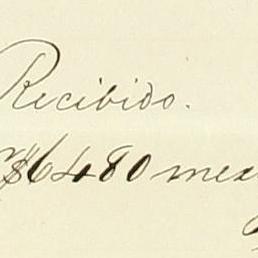 Recibido.
$6480 mex